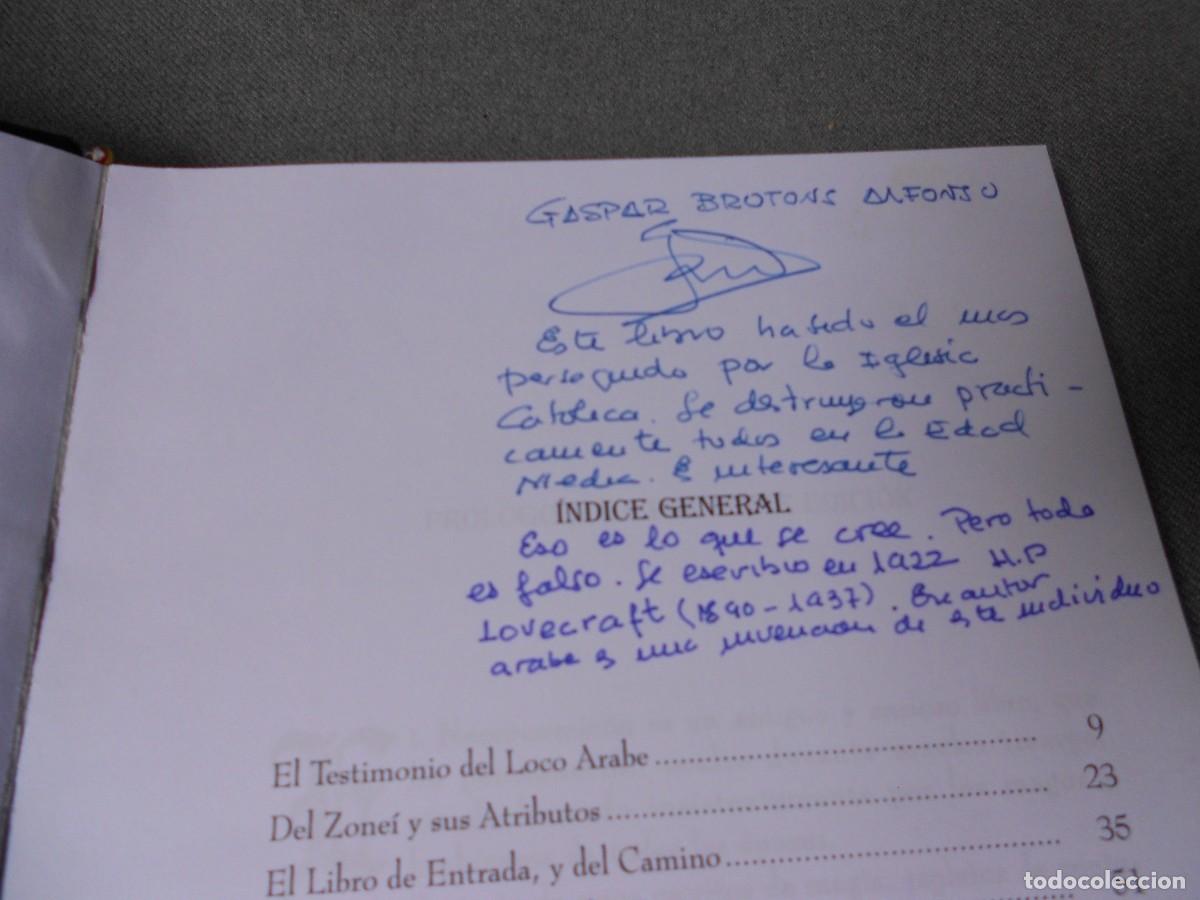 GASPAR BROTONS ALFONSO
Este libro ha sido el mas
perseguido por la Iglesia
Catolica. Se destruyeron practi-
camente todos en la Edad
Media. Es interesante
ÍNDICE GENERAL
Eso es lo que se cree. Pero todo
es falso. Se escribio en 1922 H.P
Lovecraft (1890-1937). autor
arabe es una invencion de este individuo
El Testimonio del Loco Arabe 9
Del Zoneí y sus Atributos 23
El Libro de Entrada, y del Camino 35
51
todocoleccion